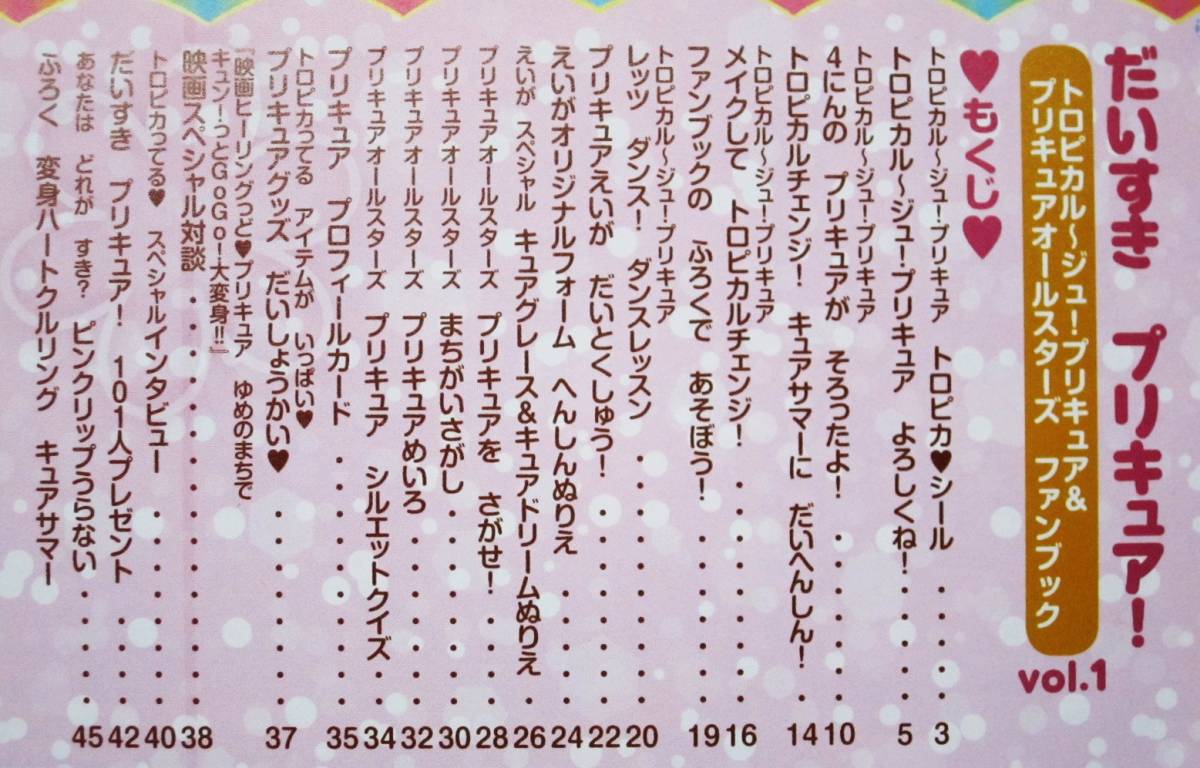 だいすき　プリキュア！
トロピカル～ジュ！プリキュア＆
プリキュアオールスターズ　ファンブック
vol.1
♥もくじ♥
トロピカル～ジュ！プリキュア　トロピカ♥シール・・・・・3
トロピカル～ジュ！プリキュア　よろしくね！・・・・・5
トロピカル～ジュ！プリキュア
4にんの　プリキュアが　そろったよ！・・・・・・10
トロピカルチェンジ！　キュアサマーに　だいへんしん！・14
トロピカル～ジュ！プリキュア
メイクして　トロピカルチェンジ！・・・・・・・・16
ファンブックの　ふろくで　あそぼう！・・・・・・19
トロピカル～ジュ！プリキュア
レッツ　ダンス！　ダンスレッスン・・・・・・・・20
プリキュアえいが　だいとくしゅう！・・・・・・・22
えいがオリジナルフォーム　へんしんぬりえ・・・・24
えいが　スペシャル　キュアグレース＆キュアドリームぬりえ・26
プリキュアオールスターズ　プリキュアを　さがせ！・・・・28
プリキュアオールスターズ　まちがいさがし・・・・・・30
プリキュアオールスターズ　プリキュアめいろ・・・・・・32
プリキュアオールスターズ　プリキュア　シルエットクイズ・・34
プリキュア　プロフィールカード・・・・・・・・35
トロピカってる　アイテムが　いっぱい♥
プリキュアグッズ　だいしょうかい♥・・・・・・・37
『映画ヒーリングっど♥プリキュア　ゆめのまちで
キュン！っとGoGo！大変身!!』
映画スペシャル対談・・・・・・・・・・・・・38
トロピカってる♥　スペシャルインタビュー・・・・・・40
だいすき　プリキュア！　101人プレゼント・・・・42
あなたは　どれが　すき？　ピンクリップうらない・・・・45
ふろく　変身ハートクルリング　キュアサマー